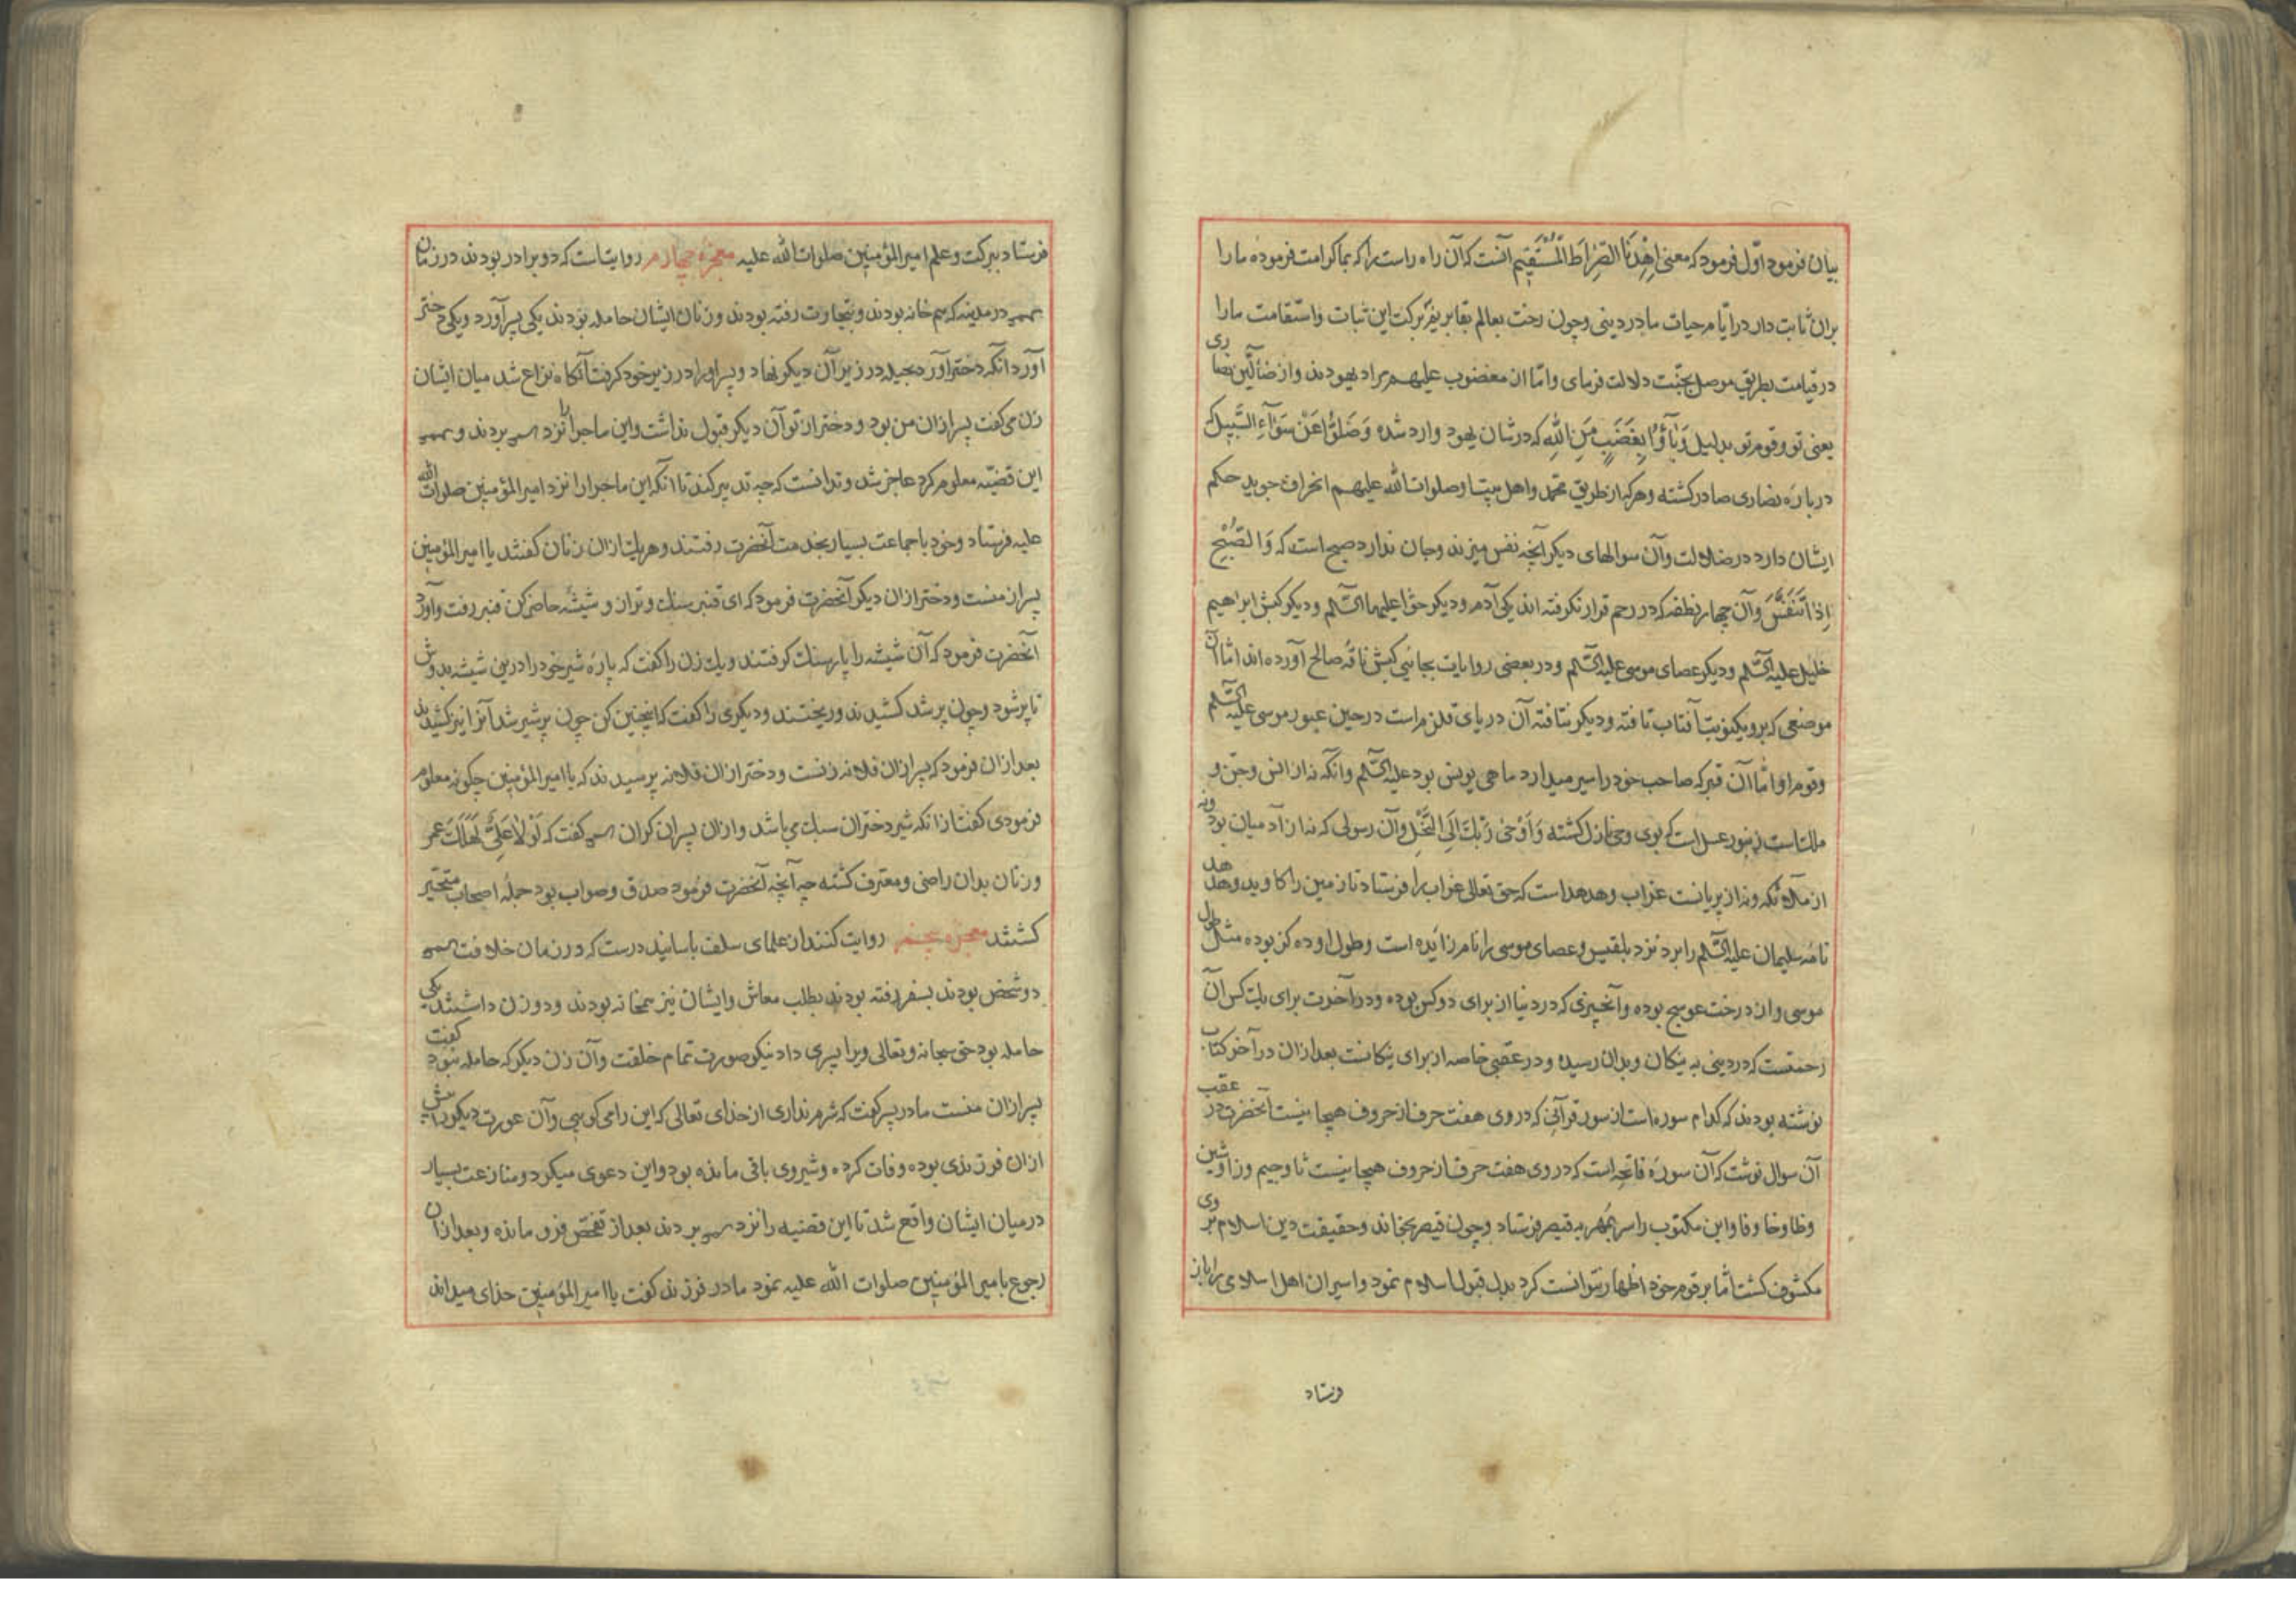 بیان فرمود اوّل فرمود که معنی اِهْدِنَا الصِّرَاطَ الْمُسْتَقِيم آنست که آن راه راست را که بما کرامت فرموده ما را
بران ثابت دار در ایّام حیات ما در دینی و چون رخت بعالم بقا بریم ببرکت این ثبات و استقامت ما را
در قیامت بطریق موصل بجنّت دلالت فرمای و امّا از مغضوب علیهم مراد یهودند و از ضالّین نصاری
یعنی تو و قوم تو بدلیل وَبَآؤُا بِغَضَبٍ مِنَ اللّٰهِ که در شان یهود وارد شده وَضَلُّوا عَنْ سَوَآءِ السَّبِيلِ که
در بارهٔ نصاری صادر کشته و هر که از طریق محمّد و اهل بیت او صلوات الله علیهم انحراف جوید حکم
ایشان دارد در ضلالت و آن سوالهای دیکر آنچه نفس میزند و جان ندارد صبح است که وَ الصُّبْحِ
اِذَا تَنَفَّسَ و آن چهار نطفه که در رحم قرار نکرفته اند یکی آدم و دیکر حوّا علیهما السّلم و دیکر کبش ابراهیم
خلیل علیه السّلم و دیکر عصای موسی علیه السّلم و در بعضی روایات بجای کبش ناقهٔ صالح آورده اند امّا آن
موضعی که برو یکنوبت آفتاب تافته و دیکر نتافته آن دریای قلزم است در حین عبور موسی علیه السّلم
و قوم او امّا آن قبر که صاحب خود را سیر میدارد ماهی یونس بود علیه السّلم و آنکه نه از انس و جن و
ملک است زنبور عسل است که بوی وحی نازل کشته وَ اَوْحٰی رَبُّكَ اِلَی النَّحْلِ و آن رسولی که نه از آدمیان بود و نه
از ملائکه و نه از پریانست غراب و هدهد است که حق تعالی غراب را فرستاد تا زمین را کاوید و هدهد
نامهٔ سلیمان علیه السّلم را برد نزد بلقیس و عصای موسی را نام زائده است و طول او ده کز بوده مثل طول
موسی و از درخت عوسج بوده و آنچیزی که در دنیا از برای دو کس بوده و در آخرت برای یک کس آن
رحمتست که در دینی به نیکان و بدان رسیده و در عقبی خاصه از برای نیکانست بعد از ان در آخر کتاب
نوشته بودند که کدام سوره است از سور قرآنی که در وی هفت حرف از حروف هیجا نیست آنحضرت در عقب
آن سوال نوشت که آن سورهٔ فاتحه است که در وی هفت حرف از حروف هیجا نیست ثا و جیم و زا و شین
و ظا و خا و فا و این مکتوب را سر بمهر به قیصر فرستاد و چون قیصر بخاند و حقیقت دین اسلام بر وی
مکشوف کشت امّا بر قوم خود اظهار نتوانست کرد بدل قبول اسلام نمود و اسیران اهل اسلامی را باز
فرستاد
فرستاد ببرکت و علم امیر المؤمنین صلوات الله علیه معجزهٔ چهارم روایتست که دو برادر بودند در زمان
عمر در مدینه که هم خانه بودند و بتجارت رفته بودند و زنان ایشان حامله بودند یکی پسر آورد و یکی دختر
آورد آنکه دختر آورد بحیله در زیر آن دیکر نهاد و پسر او را در زیر خود کرفت آنکاه نزاع شد میان ایشان
زن می کفت پسر از ان من بود و دختر از تو آن دیکر قبول نداشت و این ماجرا را نزد عمر بردند و عمر
این قضیّه معلوم کرد عاجز شد و ندانست که چه تدبیر کند تا آنکه این ماجرا را نزد امیر المؤمنین صلوات الله
علیه فرستاد و خود با جماعت بسیار بخدمت آنحضرت رفتند و هر یک از ان زنان کفتند یا امیر المؤمنین
پسر از منست و دختر از ان دیکر آنحضرت فرمود که ای قنبر سنک و ترازو شیشه حاضر کن قنبر رفت و آورد
آنحضرت فرمود که آن شیشه را با سنک کرفتند و یک زن را کفت که پارهٔ شیر خود را درین شیشه بدوش
تا پر شود و چون پر شد کشیدند و ریختند و دیکری را کفت که اینچنین کن چون پر شیر شد آنرا نیز کشیدند
بعد از ان فرمود که پسر از ان فلانه زنست و دختر از ان فلانه پرسیدند که یا امیر المؤمنین چکونه معلوم
فرمودی کفت از انکه شیر دختران سبک می باشد و از ان پسران کران عمر کفت که لَوْلَا عَلِیٌّ لَهَلَكَ عُمَر
و زنان بدان راضی و معترف کشته چه آنچه آنحضرت فرمود صدق و صواب بود جملهٔ اصحاب متحیّر
کشتند معجزهٔ پنجم روایت کنند از علمای سلف باسانید درست که در زمان خلافت عمر
دو شخص بودند بسفر رفته بودند بطلب معاش و ایشان نیز همخانه بودند و دو زن داشتند یکی
حامله بود حق سبحانه و تعالی ویرا پسری داد نیکو صورت تمام خلقت و آن زن دیکر که حامله نبود کفت
پسر از ان منست مادر پسر کفت که شرم نداری از خدای تعالی که این را می کویی و آن عورت دیکر را پیش
از ان فرزندی بوده وفات کرده و شیر وی باقی مانده بود و این دعوی میکرد و منازعت بسیار
در میان ایشان واقع شد تا این قضیه را نزد عمر بردند بعد از تفحّص فرو مانده و بعد از ان
رجوع بامیر المؤمنین صلوات الله علیه نمود مادر فرزند کفت یا امیر المؤمنین خدای میداند